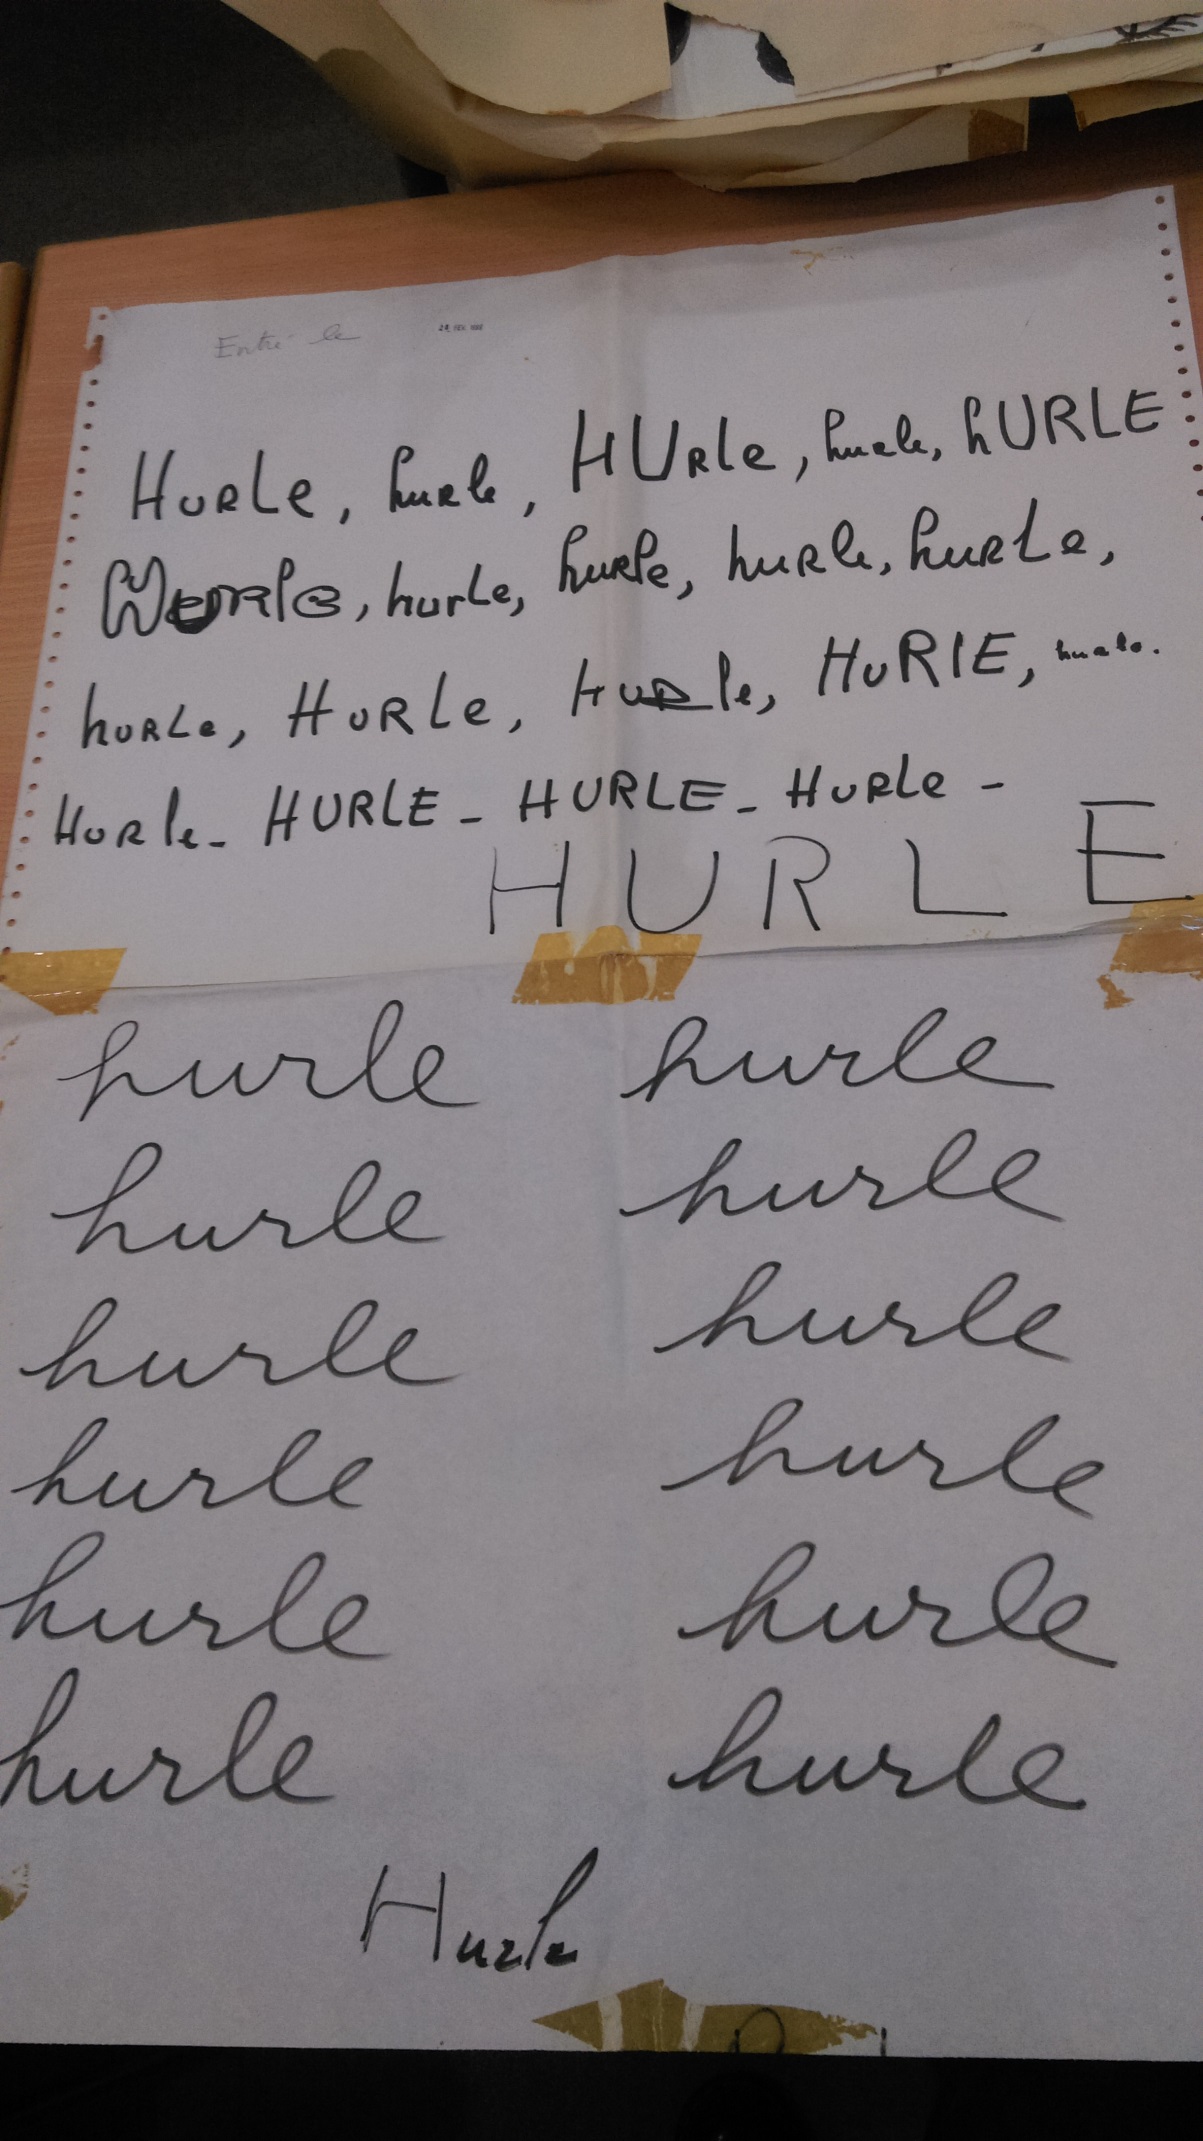 Entré le 24 FEV.
HURLe, hurle, HURle, hurle, hURLE
Hurle, hurLe, hurle, hurle, hurLe,
hURLe, HURLe, HURle, HuRlE, hurle.
HURle - HURLE - HURLE - HURLe -
HURLE
hurle hurle
hurle hurle
hurle hurle
hurle hurle
hurle hurle
hurle hurle
Hurle